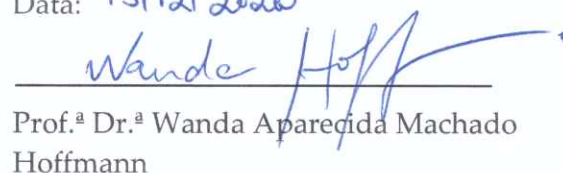 Data: 15/12/2020
Wanda Hoff
Prof.ª Dr.ª Wanda Aparecida Machado
Hoffmann